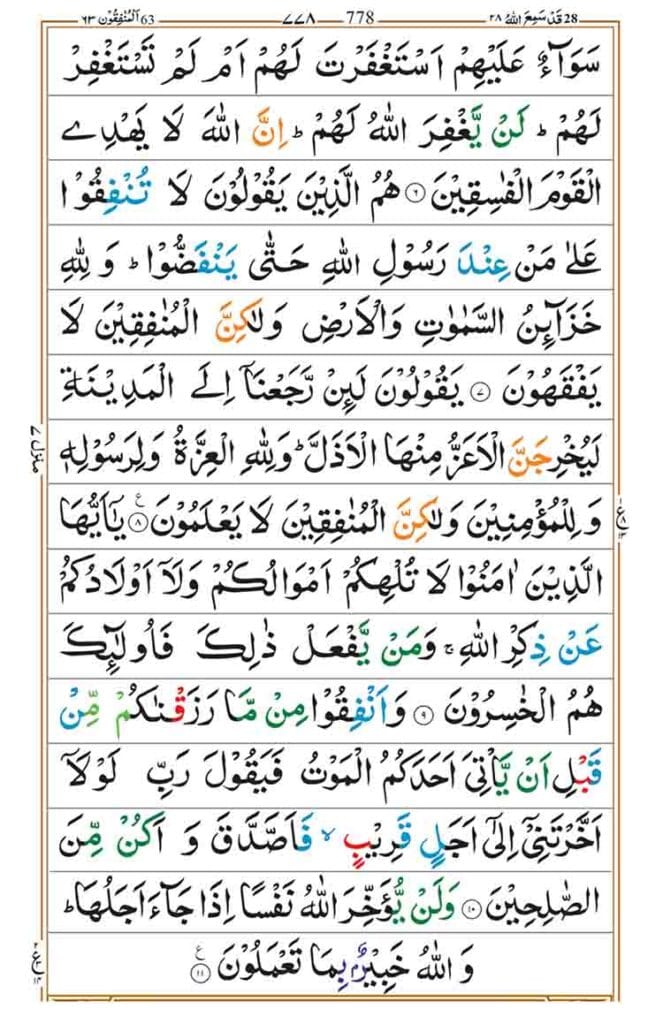 28 قَدْ سَمِعَ اللهُ ٢٨
778 ٧٧٨
63 اَلْمُنٰفِقُوْن ٦٣
سَوَآءٌ عَلَيْهِمْ اَسْتَغْفَرْتَ لَهُمْ اَمْ لَمْ تَسْتَغْفِرْ
لَهُمْ ؕ لَنْ يَّغْفِرَ اللهُ لَهُمْ ؕ اِنَّ اللهَ لَا يَهْدِے
الْقَوْمَ الْفٰسِقِيْنَ ۝٦ هُمُ الَّذِيْنَ يَقُوْلُوْنَ لَا تُنْفِقُوْا
عَلٰے مَنْ عِنْدَ رَسُوْلِ اللهِ حَتّٰى يَنْفَضُّوْا ؕ وَ لِلّٰهِ
خَزَآئِنُ السَّمٰوٰتِ وَالْاَرْضِ وَلٰكِنَّ الْمُنٰفِقِيْنَ لَا
يَفْقَهُوْنَ ۝٧ يَقُوْلُوْنَ لَئِنْ رَّجَعْنَاۤ اِلَے الْمَدِيْنَةِ
لَيُخْرِجَنَّ الْاَعَزُّ مِنْهَا الْاَذَلَّ ؕ وَلِلّٰهِ الْعِزَّةُ وَلِرَسُوْلِهٖ
وَ لِلْمُؤْمِنِيْنَ وَلٰكِنَّ الْمُنٰفِقِيْنَ لَا يَعْلَمُوْنَ ۝٨ ع يٰۤاَيُّهَا
الَّذِيْنَ اٰمَنُوْا لَا تُلْهِكُمْ اَمْوَالُكُمْ وَلَاۤ اَوْلَادُكُمْ
عَنْ ذِكْرِ اللهِ ۚ وَمَنْ يَّفْعَلْ ذٰلِكَ فَاُولٰٓئِكَ
هُمُ الْخٰسِرُوْنَ ۝٩ وَاَنْفِقُوْا مِنْ مَّا رَزَقْنٰكُمْ مِّنْ
قَبْلِ اَنْ يَّاْتِىَ اَحَدَكُمُ الْمَوْتُ فَيَقُوْلَ رَبِّ لَوْلَاۤ
اَخَّرْتَنِىْۤ اِلٰۤى اَجَلٍ قَرِيْبٍ ۙ فَاَصَّدَّقَ وَ اَكُنْ مِّنَ
الصّٰلِحِيْنَ ۝١٠ وَلَنْ يُّؤَخِّرَ اللهُ نَفْسًا اِذَا جَآءَ اَجَلُهَا ؕ
وَ اللهُ خَبِيْرٌۢ بِمَا تَعْمَلُوْنَ ۝١١ ع
منزل ٧